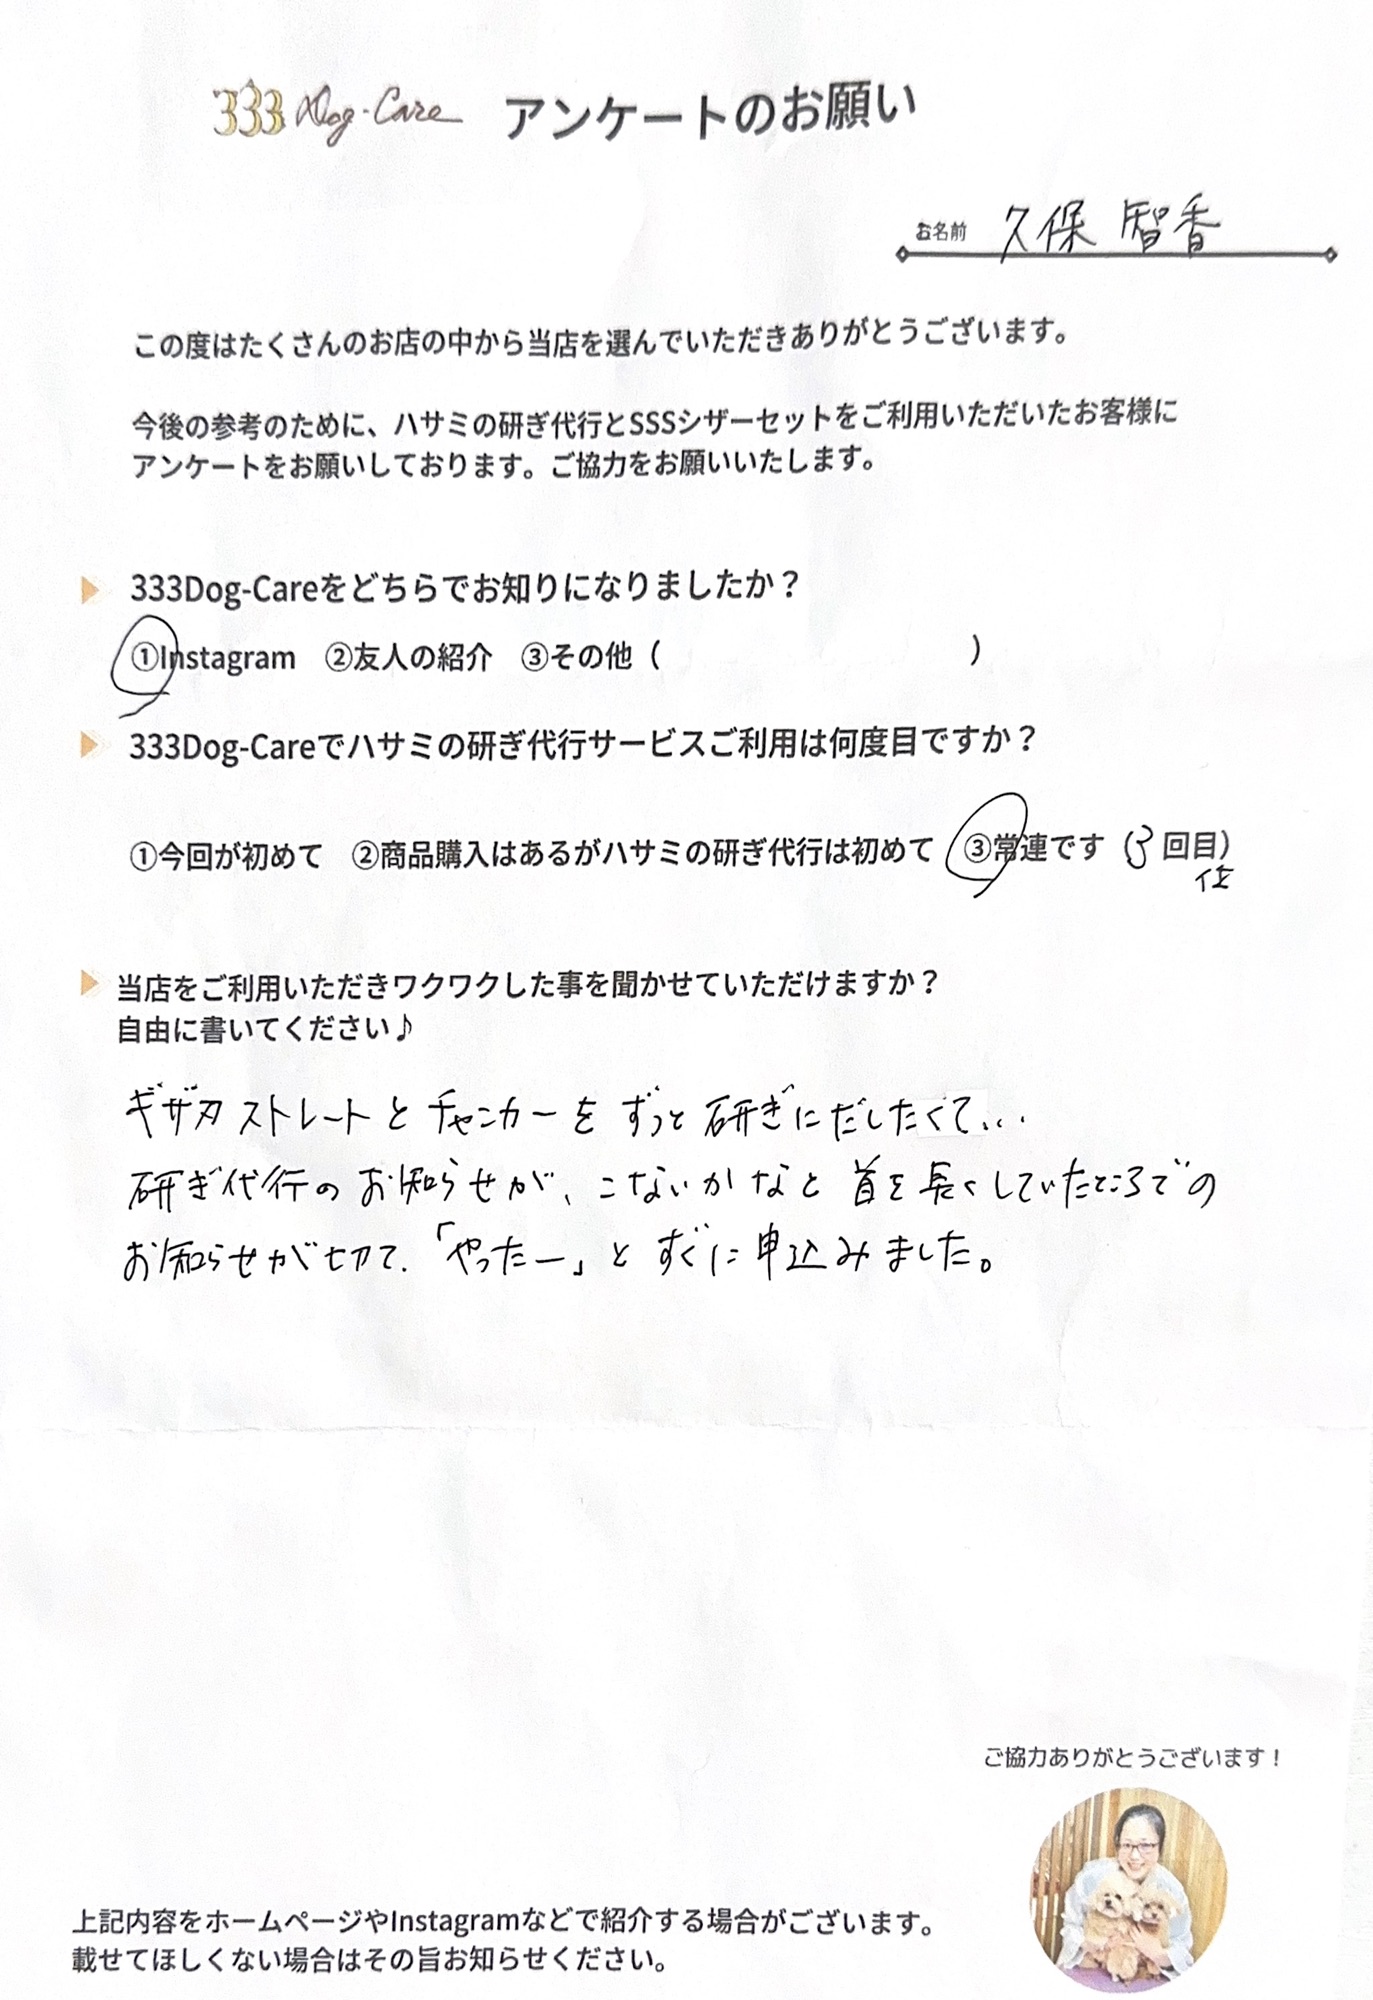 333 Dog-Care アンケートのお願い
お名前 久保 智香
この度はたくさんのお店の中から当店を選んでいただきありがとうございます。
今後の参考のために、ハサミの研ぎ代行とSSSシザーセットをご利用いただいたお客様に
アンケートをお願いしております。ご協力をお願いいたします。
333Dog-Careをどちらでお知りになりましたか？
①Instagram ②友人の紹介 ③その他（ ）
333Dog-Careでハサミの研ぎ代行サービスご利用は何度目ですか？
①今回が初めて ②商品購入はあるがハサミの研ぎ代行は初めて ③常連です（3回目）
位
当店をご利用いただきワクワクした事を聞かせていただけますか？
自由に書いてください♪
ギザ刃ストレートとチャンカーをずっと研ぎにだしたくて...
研ぎ代行のお知らせが、こないかなと首を長くしていたところでの
お知らせが切て、「やったー」とすぐに申込みました。
ご協力ありがとうございます！
上記内容をホームページやInstagramなどで紹介する場合がございます。
載せてほしくない場合はその旨お知らせください。